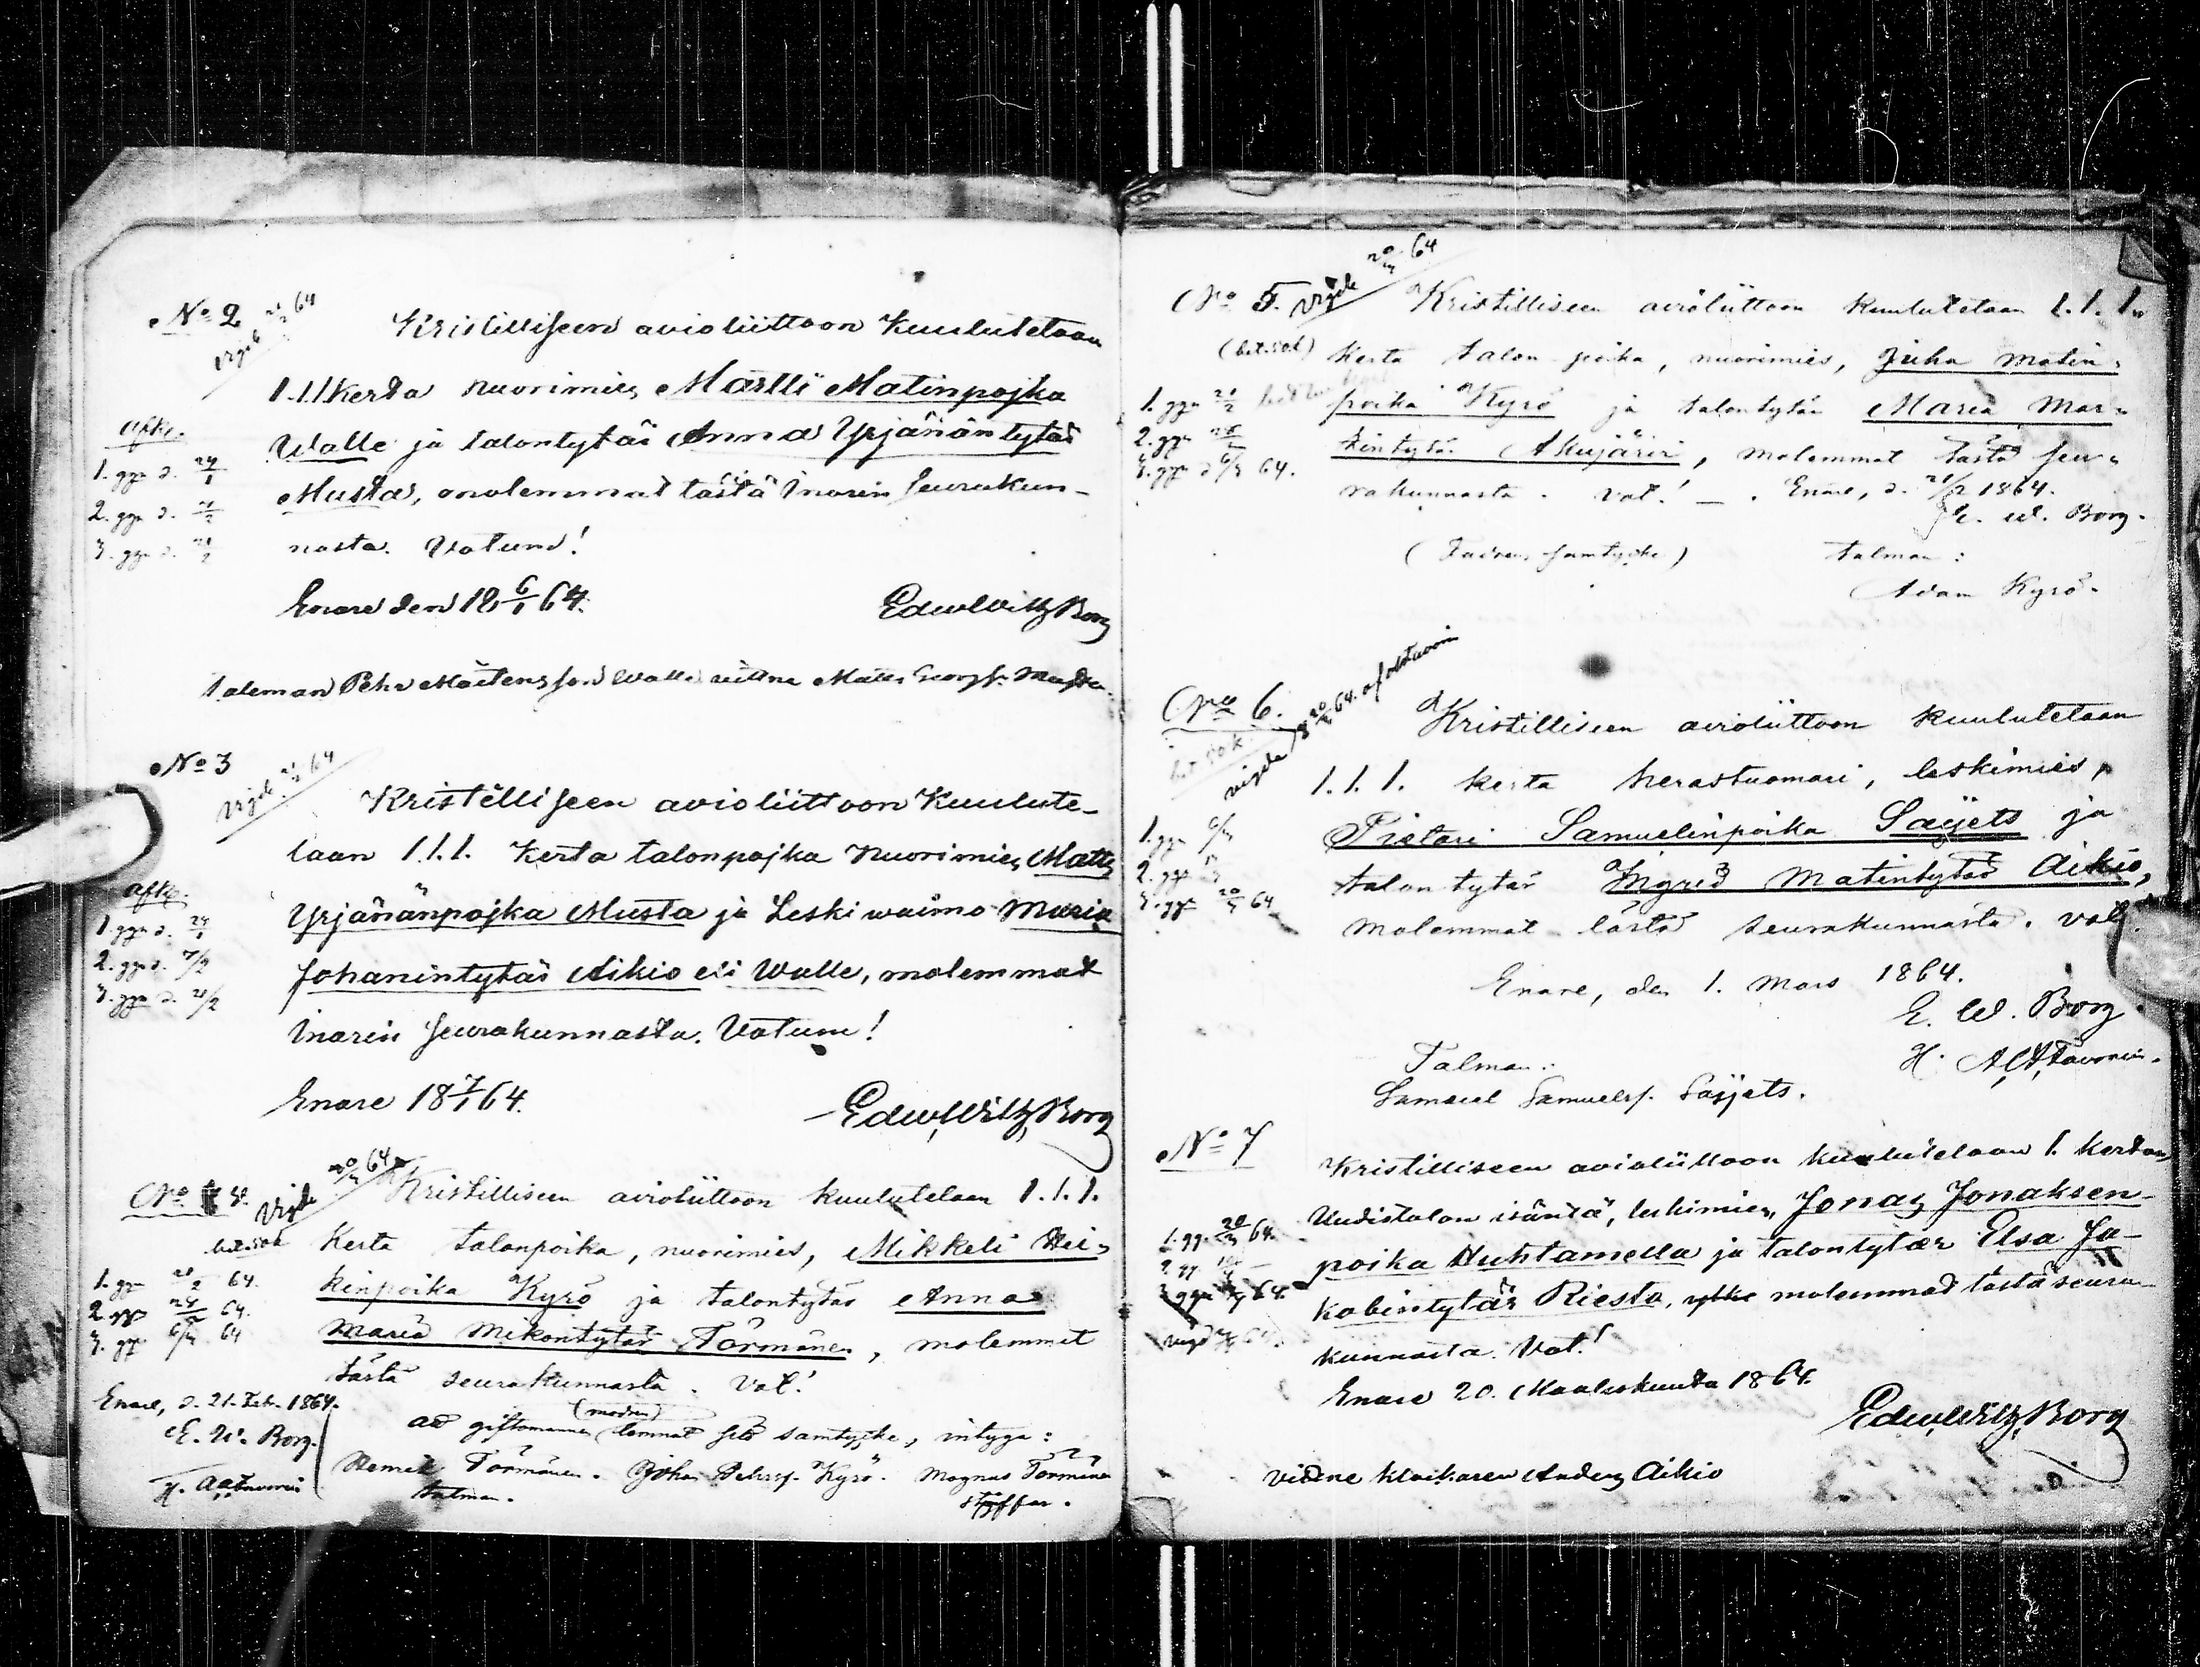 No 2
Vigde 21/2 64
Kristilliseen avioliittoon Kuulutetaan
1.1.1 kerta nuorimies Martti Matinpojka
Walle ja talontytär Anna Yrjänäntytär
Musta, molemmat tästä Inarin seurakun-
nasta. Votum!
Afk.
1. ggn d. 24/1
2. ggn d. 7/2
3. ggn d. 21/2
Enare den 18 6/1 64.
Edw Wilh Borg
Taleman Pehr Mårtensson Walle vittne Matts Georgs. Musta.
No 3
Vigde 21/2 64
Kristilliseen avioliittoon Kuulute-
taan 1.1.1. Kerta talonpojka Nuorimies Matts
Yrjänänpojka Musta ja Leski waimo Maria
Johanintytär Aikio eli Walle, molemmat
Inarin seurakunnasta. Votum!
afk.
1. ggn d. 24/1
2. ggn d. 7/2
3. ggn d. 21/2
Enare 18 7/1 64.
Edw. Wilh. Borg
No 4.
Vigde 20/3 64
bet. sok
Kristilliseen avioliittoon kuulutetaan 1.1.1.
Kerta talonpoika, nuorimies, Mikkeli Hei-
kinpoika Kyrö ja talontytär Anna
Maria Mikontytär Törmänen, molemmat
tästä seurakunnasta. Vot!
1. gg 21/2 64.
2. gg 28/2 64.
3. gg 6/3 64
Enare, d. 21. Feb. 1864.
E. W. Borg.
att giftomannen (modren) lemnat sitt samtycke, intyga:
Henrik Törmänen. Johan Pehrss. Kyrö. Magnus Törmänen
talman.
No 5.
Vigde 20/3 64
(bet. sok)
Kristilliseen avioliittoon kuulutetaan 1.1.1.
Kerta talon poika, nuorimies, Juha Matin-
poika Kyrö ja talontytär Maria Mar-
kintytär Akujärvi, molemmat tästä seu-
rakunnasta. Vot! — . Enare, d. 21/2 1864.
1. ggn 21/2
2. ggn 28/2
3. ggn d 6/3 64.
E. W. Borg.
(Fadrens samtycke)
talman:
Adam Kyrö.
No 6.
bet sok
vigde 20/3 64.
Kristilliseen avioliittoon kuulutetaan
1.1.1. kerta herastuomari, leskimies,
Pietari Samuelinpoika Saijets ja
talon tytär Ingrid Matintytär Aikio,
molemmat tästä seurakunnasta. Vot!
1. ggn 6/3
2. ggn 13/3
3. ggn 20/3 64
Enare, den 1. Mars 1864.
E. W. Borg
Talman:
Samuel Samuelss. Saijets.
No 7
Kristilliseen avioliittoon kuulutetaan 1. kertan
Uudistalon isäntä, leskimies, Jonas Jonaksen-
poika Huhtamella ja talontytär Elsa Ja-
kobintytär Riesto, molemmat tästä seura-
kunnasta. Vot!
1. gg. 20/3 64.
Enare 20. Maaliskuuta 1864.
Edw. Wilh. Borg
vittne klockaren Anders Aikio